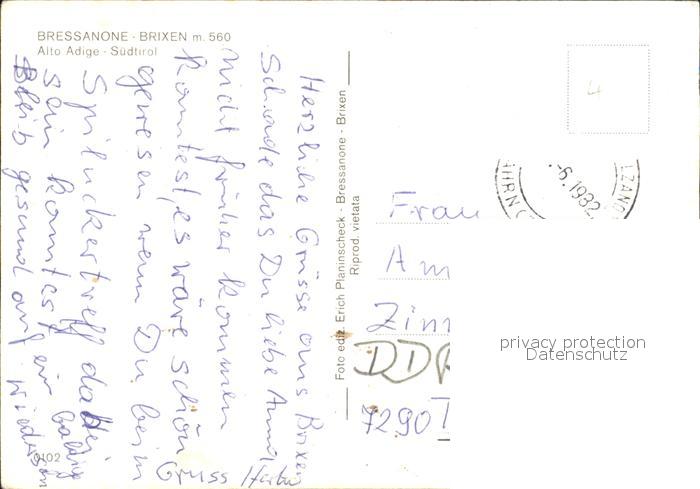 BRESSANONE - BRIXEN m. 560
Alto Adige - Südtirol
Herzliche Grüsse aus Brixen
Schade das Du liebe Anna
nicht früher kommen
konntest, es wäre schön
gewesen wenn Du beim
Spiluckertreff dabei
sein konntest
Bleib gesund auf ein baldiges
Wiedersehn
Gruss
0102
Foto ediz. Erich Planinscheck - Bressanone - Brixen
Riprod. vietata
4
-6.1982
LZANO
Frau
Am
Zim
DDR
7290 T
privacy protection
Datenschutz